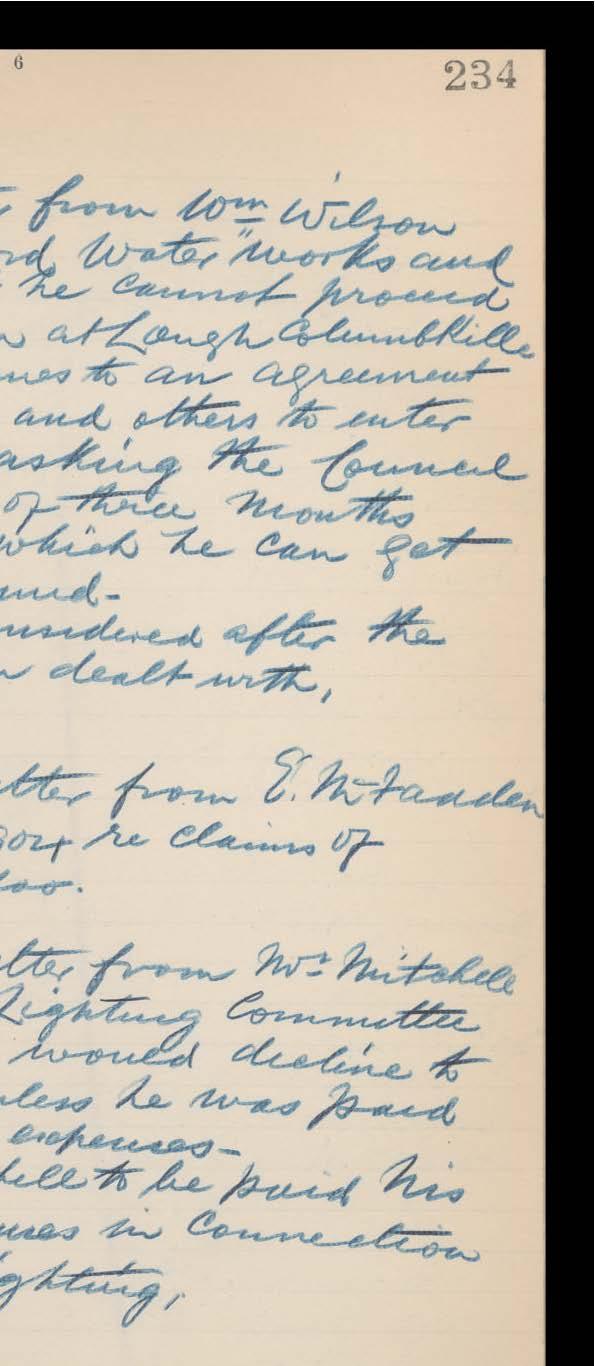 6
234
from Wm Wilson
Water" works and
he cannot proceed
at Lough Columbkille
to an agreement
and others to enter
asking the Council
of three months
which he can get
after the
dealt with,
from E. McFadden
re claims of
from Mr Mitchell
Lighting Committee
would decline to
he was paid
expenses-
to be paid his
in Connection